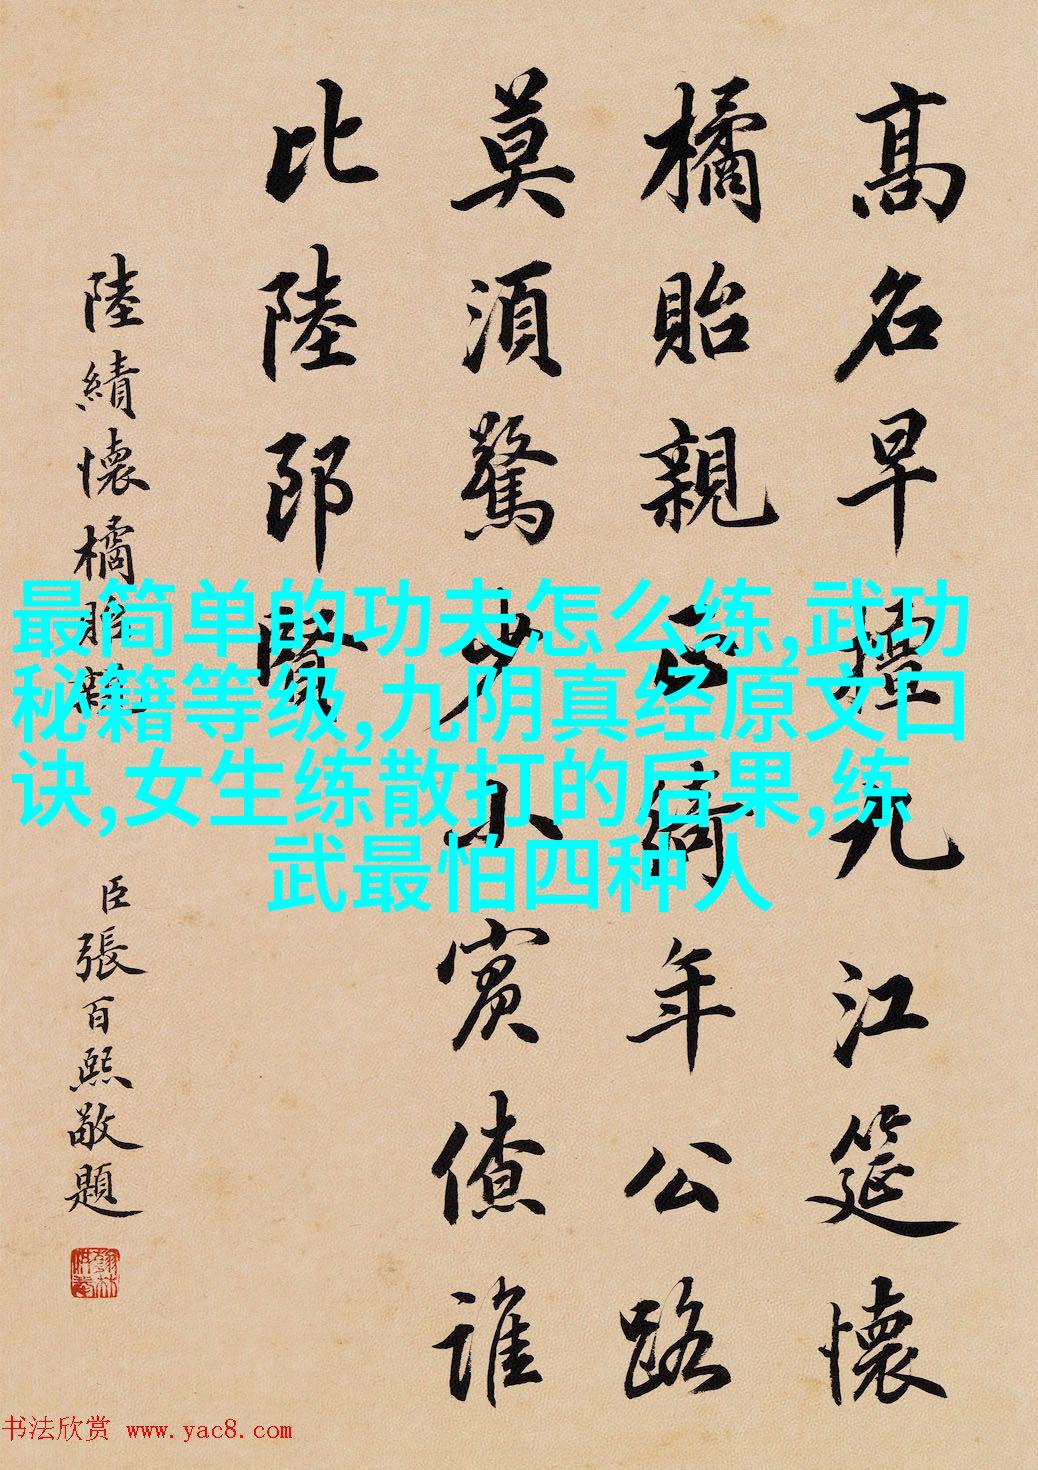 高名早擅九江筵懷
橘貽親正綺年公路
莫須驚少小賓僚誰
比陸郎賢
陸績懷橘貽親
臣張百熙敬題
最简单的功夫怎么练,武功
秘籍等级,九阴真经原文口
诀,女生练散打的后果,练
武最怕四种人
书法欣赏 www.yac8.com